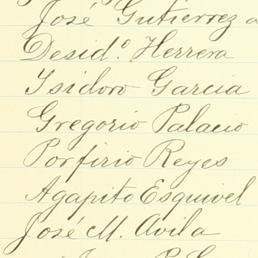 José Gutierrez
Desid.º Herrera
Isidoro Garcia
Gregorio Palacio
Porfirio Reyes
Agapito Esquivel
José M. Avila